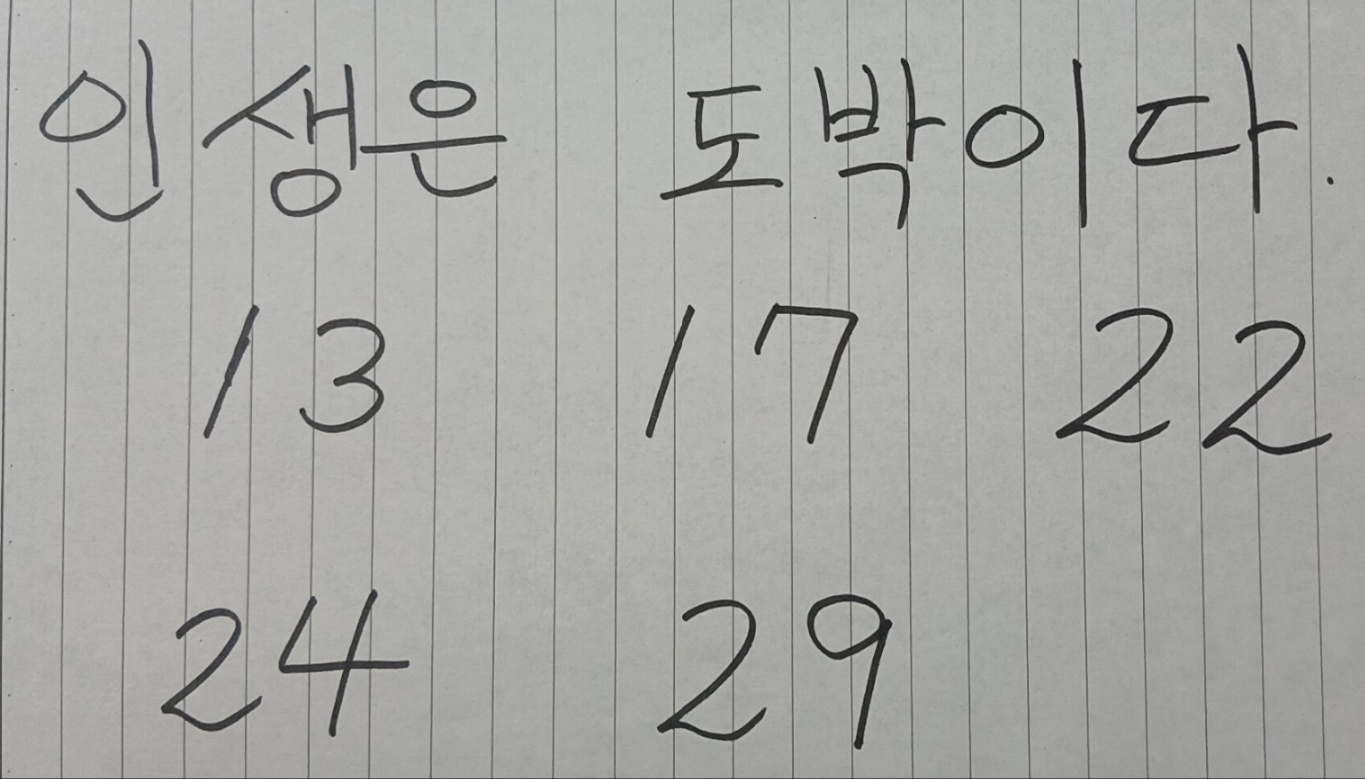 인생은 도박이다.
13 17 22
24 29